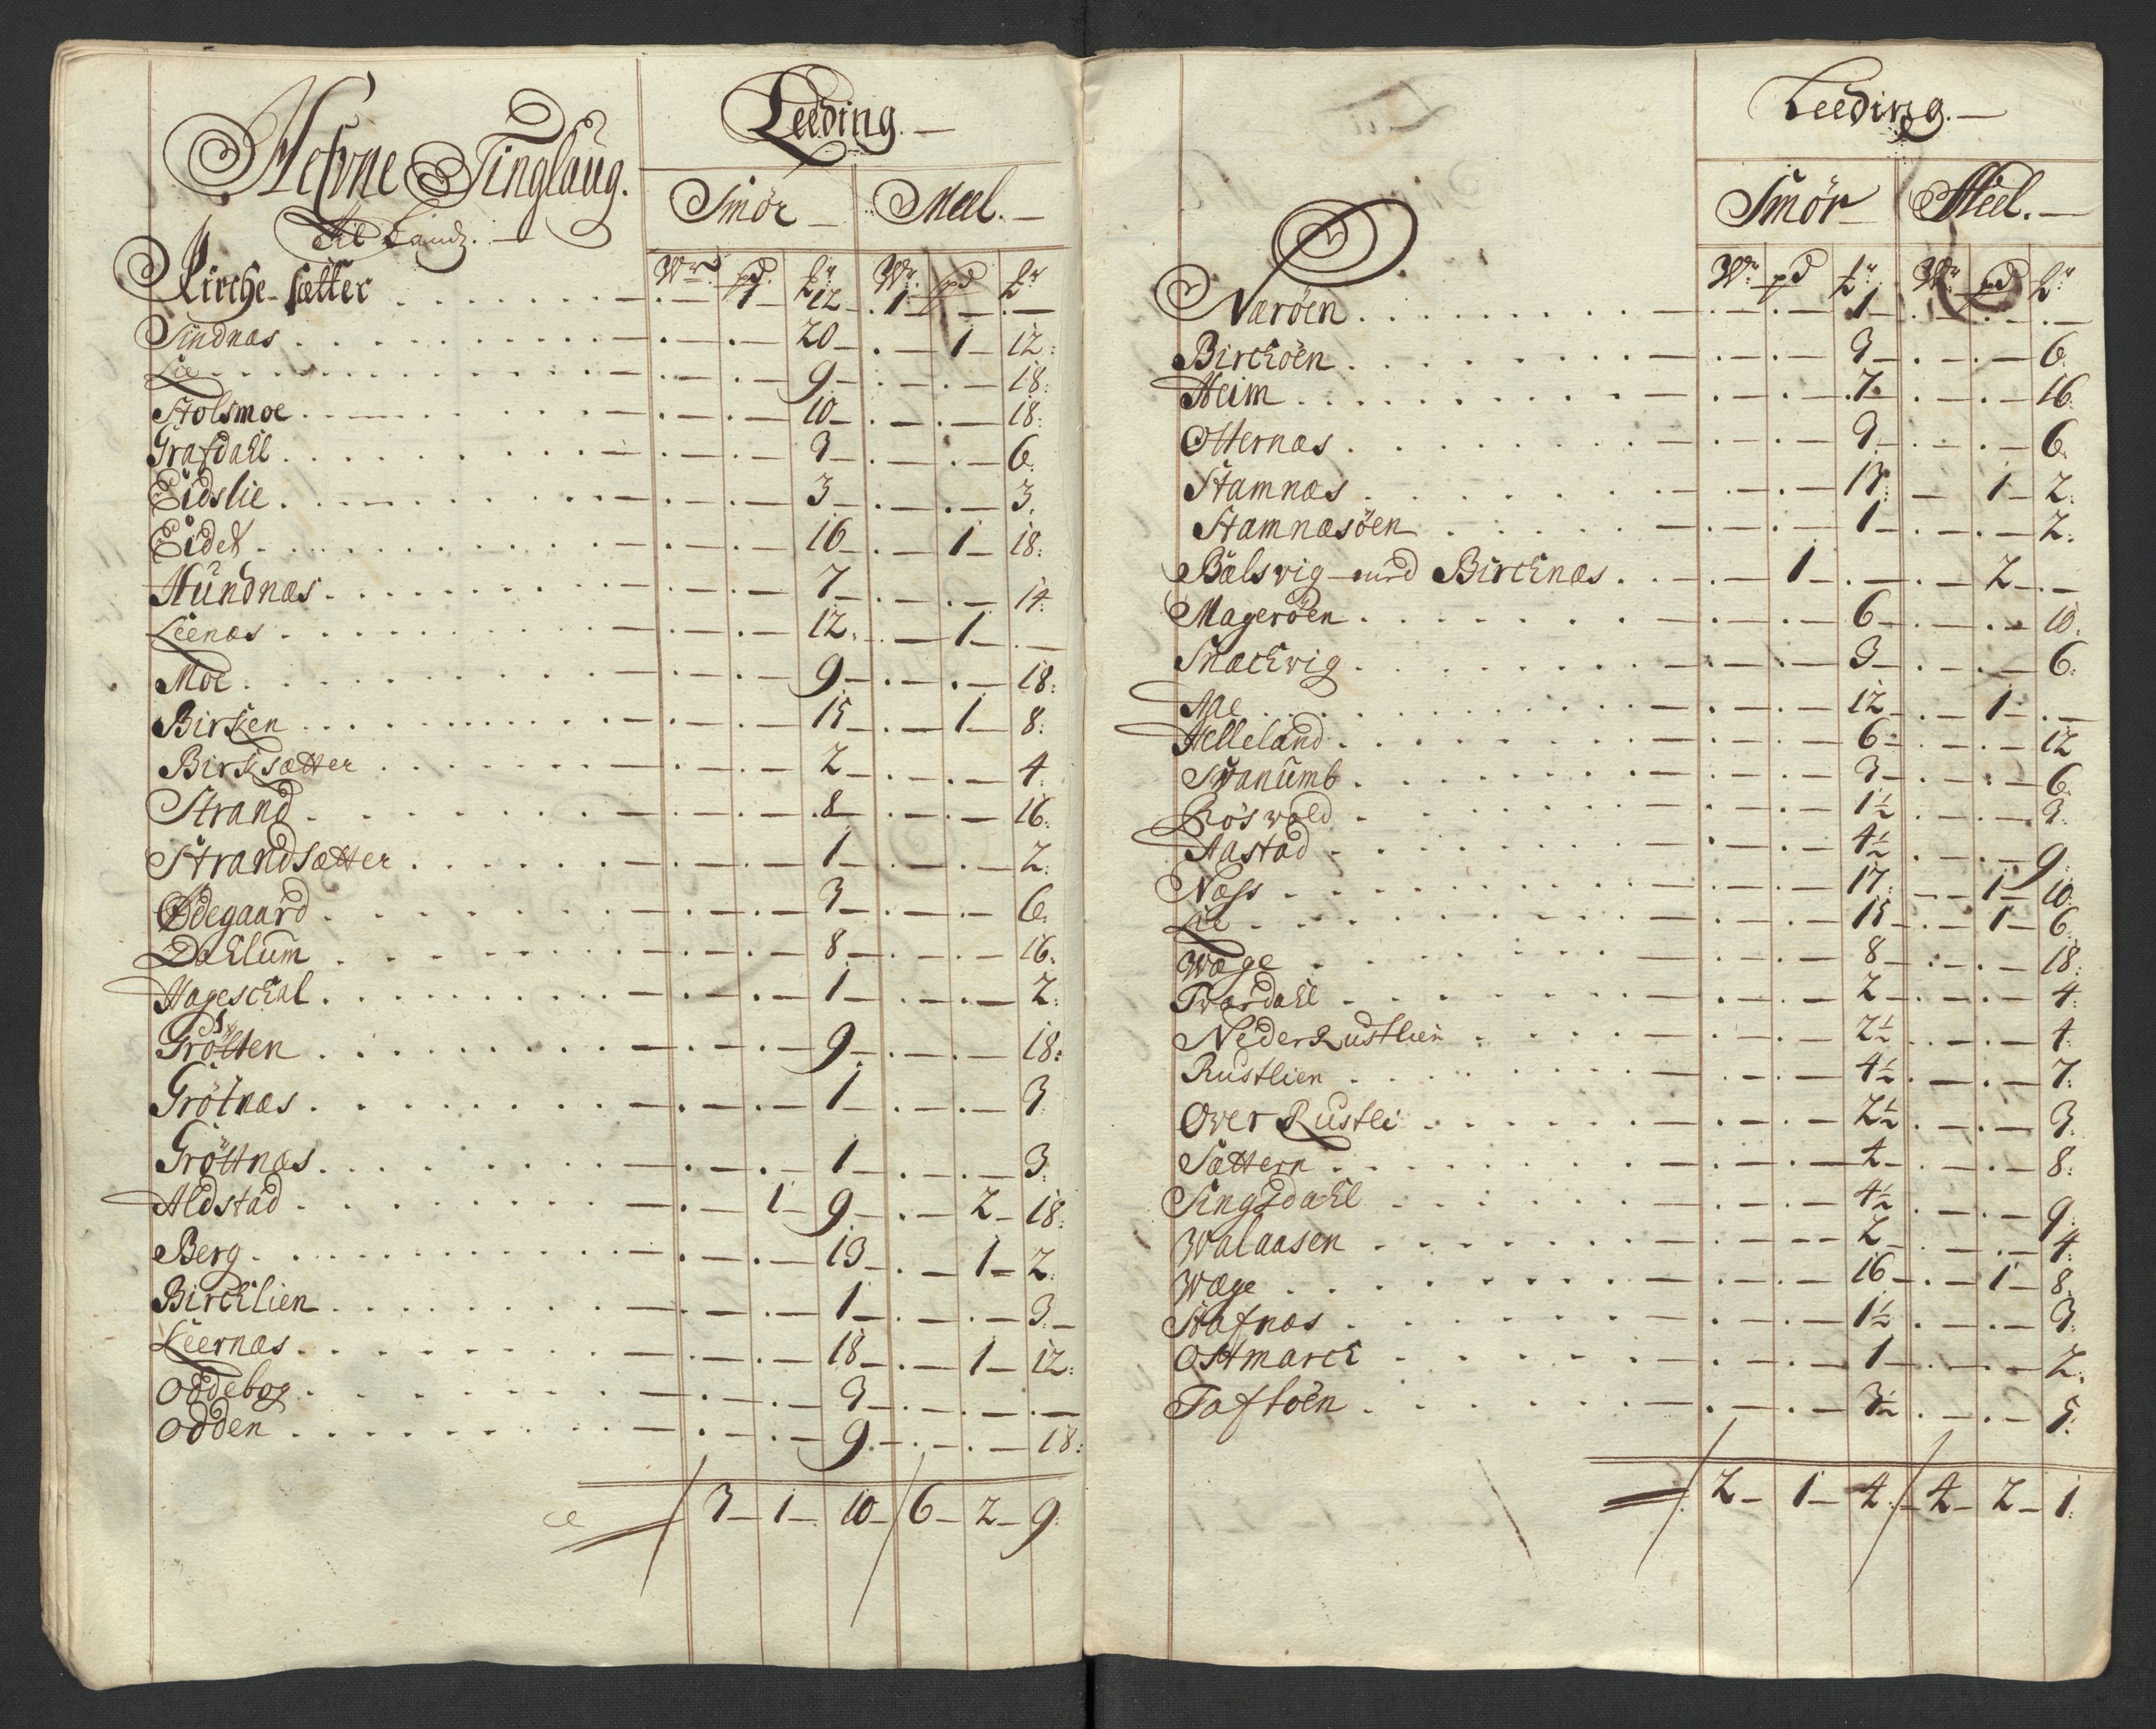 Hefvne Tinglaug.
Leeding.
Smör Meel.
Wr pd Lr Wr pd Lr
Kirche-sætter . — . 1 — 12 — 1 — . — . —
Sindnæs . — . — 20 — . — 1 — 12:
Lie . — . — 9 — . — . — 18:
Stolsmoe . — . — 10 — . — . — 18:
Grafdahl . — . — 3 — . — . — 6.
Eidslie . — . — 3 — . — . — 3.
Eidet . — . — 16 — . — 1 — 18:
Hundnæs . — . — 7 — . — . — 14:
Leenæs . — . — 12 . — 1 — . —
Moe . — . — 9 — . — . — 18:
Birken . — . — 15 — . — 1 — 8:
Birksætter . — . — 2 — . — . — 4.
Strand . — . — 8 — . — . — 16:
Strandsætter . — . — 1 — . — . — 2:
Ødegaard . — . — 3 — . — . — 6.
Dahlum . — . — 8 — . — . — 16.
Hageschal . — . — 1 — . — . — 2:
Grötten . — . — 9 — . — . — 18:
Grötnæs . — . — 1 — . — . — 3.
Gröttnæs . — . — 1 — . — . — 3
Aldstad . — 1 — 9 — . — 2 — 18:
Berg . — . — 13 — . — 1 — 2.
Birchlien . — . — 1 — . — . — 3: —
Leernæs . — . — 18 — . — 1 — 12:
Oddebog . — . — 3 — . — . — . —
Odden . — . — 9 . — . — . — 18:
3 — 1 — 10 — 6 — 2 — 9:
Leeding. —
Smör Meel. —
Wr pd Lr Wr pd Lr
Næröen . — . — 1 — . — . — . —
Birchöen . — . — 3 — . — . — 6.
Heim . — . — 7 . — . — 16.
Otternæs . — . — 3 — . — . — 6.
Stamnæs . — . — 13: — 1 — 2:
Stamnæsöen . — . — 1 — . — . — 2:
Bælsvig — Birchnæs . — 1 — . — . — 2 — . —
Mageröen . — . — 6 — . — . — 10.
Snachvig . — . — 3 — . — . — 6:
Aae . — . — 12 — . — 1 — . —
Helleland . — . — 6 — . — . — 12
Svanumb . — . — 3 — . — . — 6.
Rösvold . — . — 1½ . — . — 3.
Aastad . — . — 4½ . — . — 9.
Næss . — . — 17: — 1 — 10.
Lie . — . — 15 — . — 1 — 6.
Wæge . — . — 8 — . — . — 18:
Tværdahl . — . — 2 — . — . — 4:
Neder Rustlien . — . — 2½ . — . — 4.
Rustlien . — . — 4½ . — . — 7:
Over Rustli . — . — 2½ . — . — 3.
Sættern . — . — 4 — . — . — 8:
Singsdahl . — . — 4½ . — . — 9.
Walaasen . — . — 2 — . — . — 4:
Wæge . — . — 16 — . — 1 — 8.
Stafnæs . — . — 1½ — . — . — 3:
Ostmarch . — . — 1 — . — . — 2.
Taftöen . — . — 3½ . — . — 5:
2 — 1 — 4 . — 4 — 2 — 1: